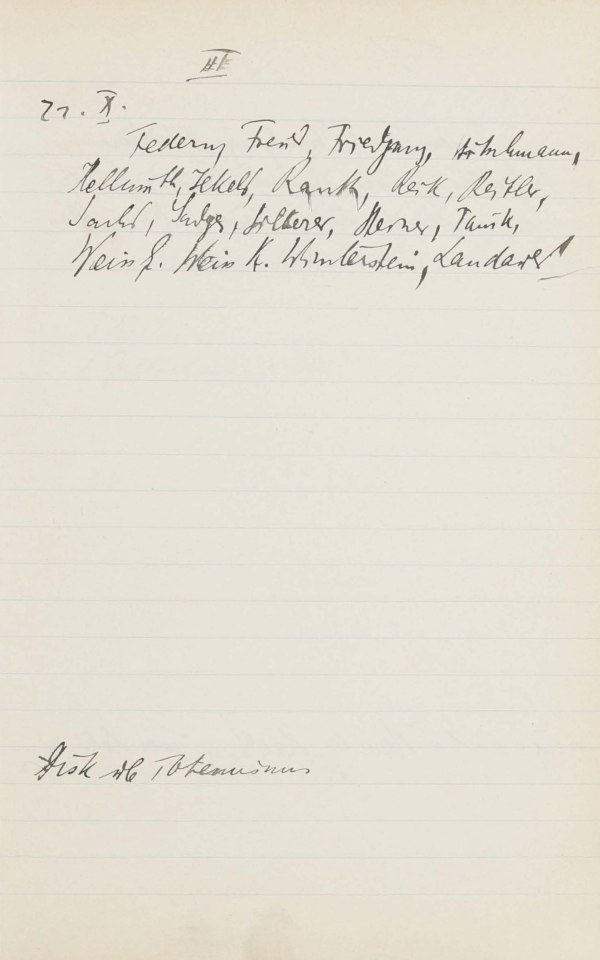 III
22. X.
Federn, Freud, Friedjung, Hitschmann,
Hellmuth, Jekels, Rank, Reik, Reitler,
Sachs, Sadger, Silberer, Steiner, Tausk,
Weiss E. Weiss K. Winterstein, Landauer
Disk üb Totemismus